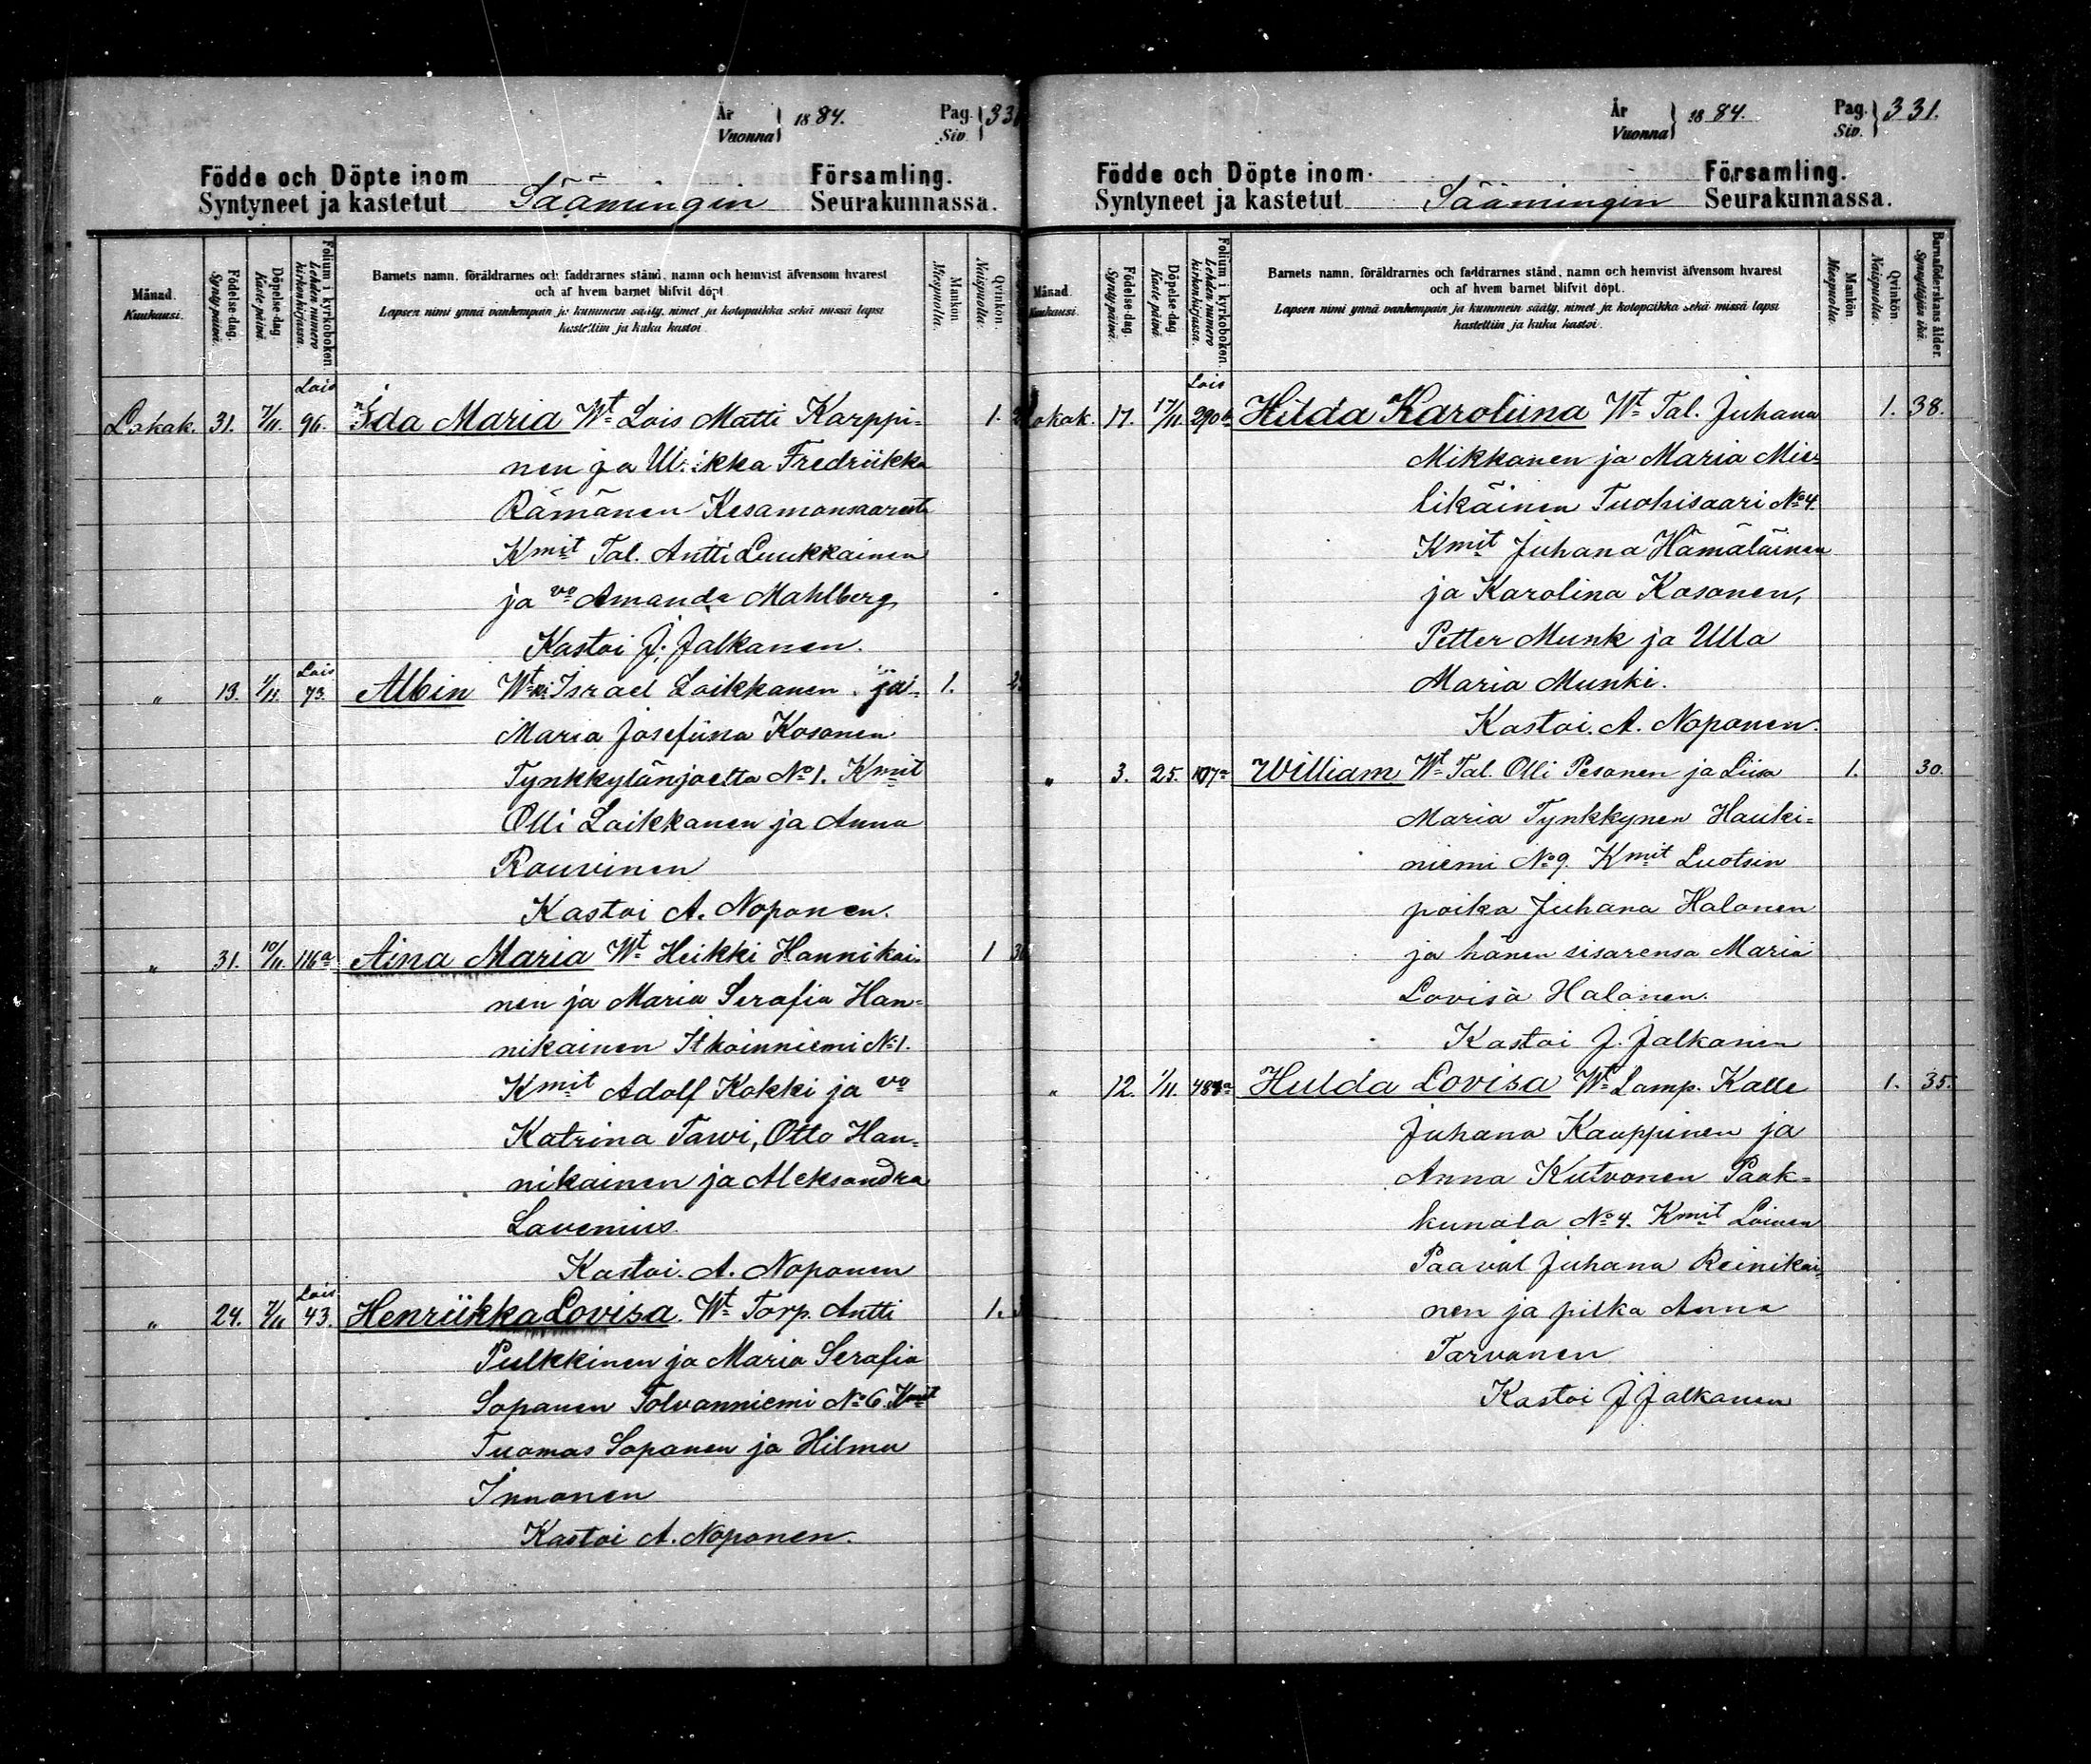 År
Vuonna } 1884.
Pag.
Siv. } 33
Födde och Döpte inom Församling.
Syntyneet ja kastetut Säämingin Seurakunnassa.
Månad.
Kuukausi.
Födelse-dag.
Syntypäivä.
Döpelse-dag.
Kastepäivä.
Folium i kyrkoboken.
Lehden numero
kirkonkirjassa.
Barnets namn, föräldrarnes och faddrarnes stånd, namn och hemvist äfvensom hvarest
och af hvem barnet blifvit döpt.
Lapsen nimi ynnä vanhempain ja kummein sääty, nimet ja kotopaikka sekä missä lapsi
kastettiin ja kuka kastoi.
Mankön.
Miespuolia.
Qvinkön.
Naispuolia.
Lois
Lokak. 31. 7/11. 96. Ida Maria Wt Lois Matti Karppi- 1. 2
nen ja Ulrikka Fredriikka
Rämänen Kesamonsaaresta
Kmit Tal. Antti Luukkainen
ja vo Amanda Mahlberg
Kastoi J. Jalkanen.
Lois
" 13. 1/11. 73. Albin Wt Israel Laikkanen ja 1. 2
Maria Josefiina Kosonen
Tynkkylänjoelta No 1. Kmit
Olli Laikkanen ja Anna
Rouvinen
Kastoi A. Noponen.
" 31. 10/11. 116a Aina Maria Wt Heikki Hannikai- 1 3
nen ja Maria Serafia Han-
nikainen Itkoinniemi No 1.
Kmit Adolf Kokki ja vo
Katrina Tawi, Otto Han-
nikainen ja Aleksandra
Lavenius.
Kastoi. A. Noponen
Lois
" 24. 7/11 43. Henriikka Lovisa. Wt Torp. Antti 1.
Pulkkinen ja Maria Serafia
Sopanen Tolvanniemi No 6. Kmit
Tuomas Sopanen ja Hilma
Innanen
Kastoi A. Noponen.
År
Vuonna } 1884.
Pag.
Siv. } 331.
Födde och Döpte inom Församling.
Syntyneet ja kastetut Säämingin Seurakunnassa.
Månad.
Kuukausi.
Födelse-dag.
Syntypäivä.
Döpelse-dag.
Kastepäivä.
Folium i kyrkoboken.
Lehden numero
kirkonkirjassa.
Barnets namn, föräldrarnes och faddrarnes stånd, namn och hemvist äfvensom hvarest
och af hvem barnet blifvit döpt.
Lapsen nimi ynnä vanhempain ja kummein sääty, nimet ja kotopaikka sekä missä lapsi
kastettiin ja kuka kastoi.
Mankön.
Miespuolia.
Qvinkön.
Naispuolia.
Barnaföderskans ålder.
Synnyttäjän ikä.
Lois
Lokak. 17. 17/11 290b Hilda Karoliina Wt Tal. Juhana 1. 38.
Mikkanen ja Maria Mie-
likäinen Tuohisaari No 4.
Kmit Juhana Hämäläinen
ja Karolina Kosonen,
Petter Munk ja Ulla
Maria Munki.
Kastoi. A. Noponen.
" 3. 25. 107a William Wt Tal. Olli Pesonen ja Liisa 1. 30.
Maria Tynkkynen Hauki-
niemi No 9. Kmit Luotsin
poika Juhana Halonen
ja hänen sisarensa Maria
Lovisa Halonen.
Kastoi J. Jalkanen
" 12. 1/11. Hulda Lovisa Wt Lamp. Kalle 1. 35.
Juhana Kauppinen ja
Anna Kutvonen Paak-
kunala No 4. Kmit Loinen
Paaval Juhana Reinikai-
nen ja piika Anna
Tarvonen
Kastoi J Jalkanen